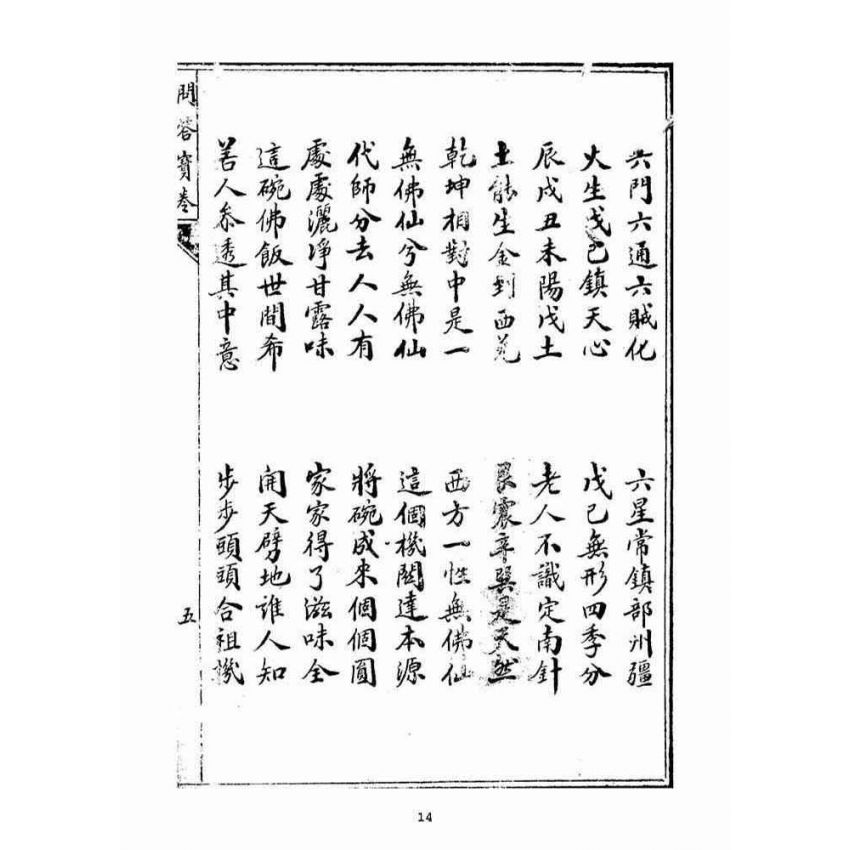 六門六通六賊化　六星常鎮部州疆
火生戊己鎮天心　戊己無形四季分
辰戌丑未陽戊土　老人不識定南針
土能生金到西　艮震辛巽是天然
乾坤相對中是一　西方一性無佛仙
無佛仙兮無佛仙　這個機関達本源
代師分去人人有　將碗成來個個圓
處處灑淨甘露味　家家得了滋味全
這碗佛飯世間希　開天劈地誰人知
善人參透其中意　步步頭頭合祖機
問答寶卷　五
14